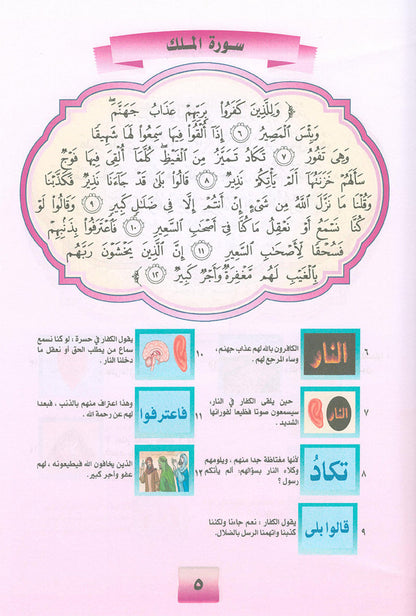 سورة الملك
﴿ وَلِلَّذِينَ كَفَرُوا بِرَبِّهِمْ عَذَابُ جَهَنَّمَ ۖ
وَبِئْسَ الْمَصِيرُ ٦ إِذَا أُلْقُوا فِيهَا سَمِعُوا لَهَا شَهِيقًا
وَهِيَ تَفُورُ ٧ تَكَادُ تَمَيَّزُ مِنَ الْغَيْظِ ۖ كُلَّمَا أُلْقِيَ فِيهَا فَوْجٌ
سَأَلَهُمْ خَزَنَتُهَا أَلَمْ يَأْتِكُمْ نَذِيرٌ ٨ قَالُوا بَلَىٰ قَدْ جَاءَنَا نَذِيرٌ فَكَذَّبْنَا
وَقُلْنَا مَا نَزَّلَ اللَّهُ مِن شَيْءٍ إِنْ أَنتُمْ إِلَّا فِي ضَلَالٍ كَبِيرٍ ٩ وَقَالُوا لَوْ
كُنَّا نَسْمَعُ أَوْ نَعْقِلُ مَا كُنَّا فِي أَصْحَابِ السَّعِيرِ ١٠ فَاعْتَرَفُوا بِذَنبِهِمْ
فَسُحْقًا لِّأَصْحَابِ السَّعِيرِ ١١ إِنَّ الَّذِينَ يَخْشَوْنَ رَبَّهُم
بِالْغَيْبِ لَهُم مَّغْفِرَةٌ وَأَجْرٌ كَبِيرٌ ١٢ ﴾
النار
٦ الكافرون بالله لهم عذاب جهنم ،
وساء المرجع لهم .
النار
٧ حين يلقى الكفار في النار،
سيسمعون صوتا فظيعا لفورانها
الشديد .
تكادُ
٨ لأنها مغتاظة جدا منهم ، ويلومهم
وكلاء النار بسؤالهم: ألم يأتكم
رسول ؟
قالوا بلى
٩ يقول الكفار : نعم جاءنا ولكننا
كذبنا واتهمنا الرسل بالضلال.
١٠ يقول الكفار في حسرة ، لو كنا نسمع
سماع من يطلب الحق أو نعقل ما
دخلنا النار .
فاعترفوا
١١ وهذا اعتراف منهم بالذنب ، فبعدا
لهم عن رحمة الله .
١٢ الذين يخافون الله فيطيعونه ، لهم
عفو وأجر كبير.
٥